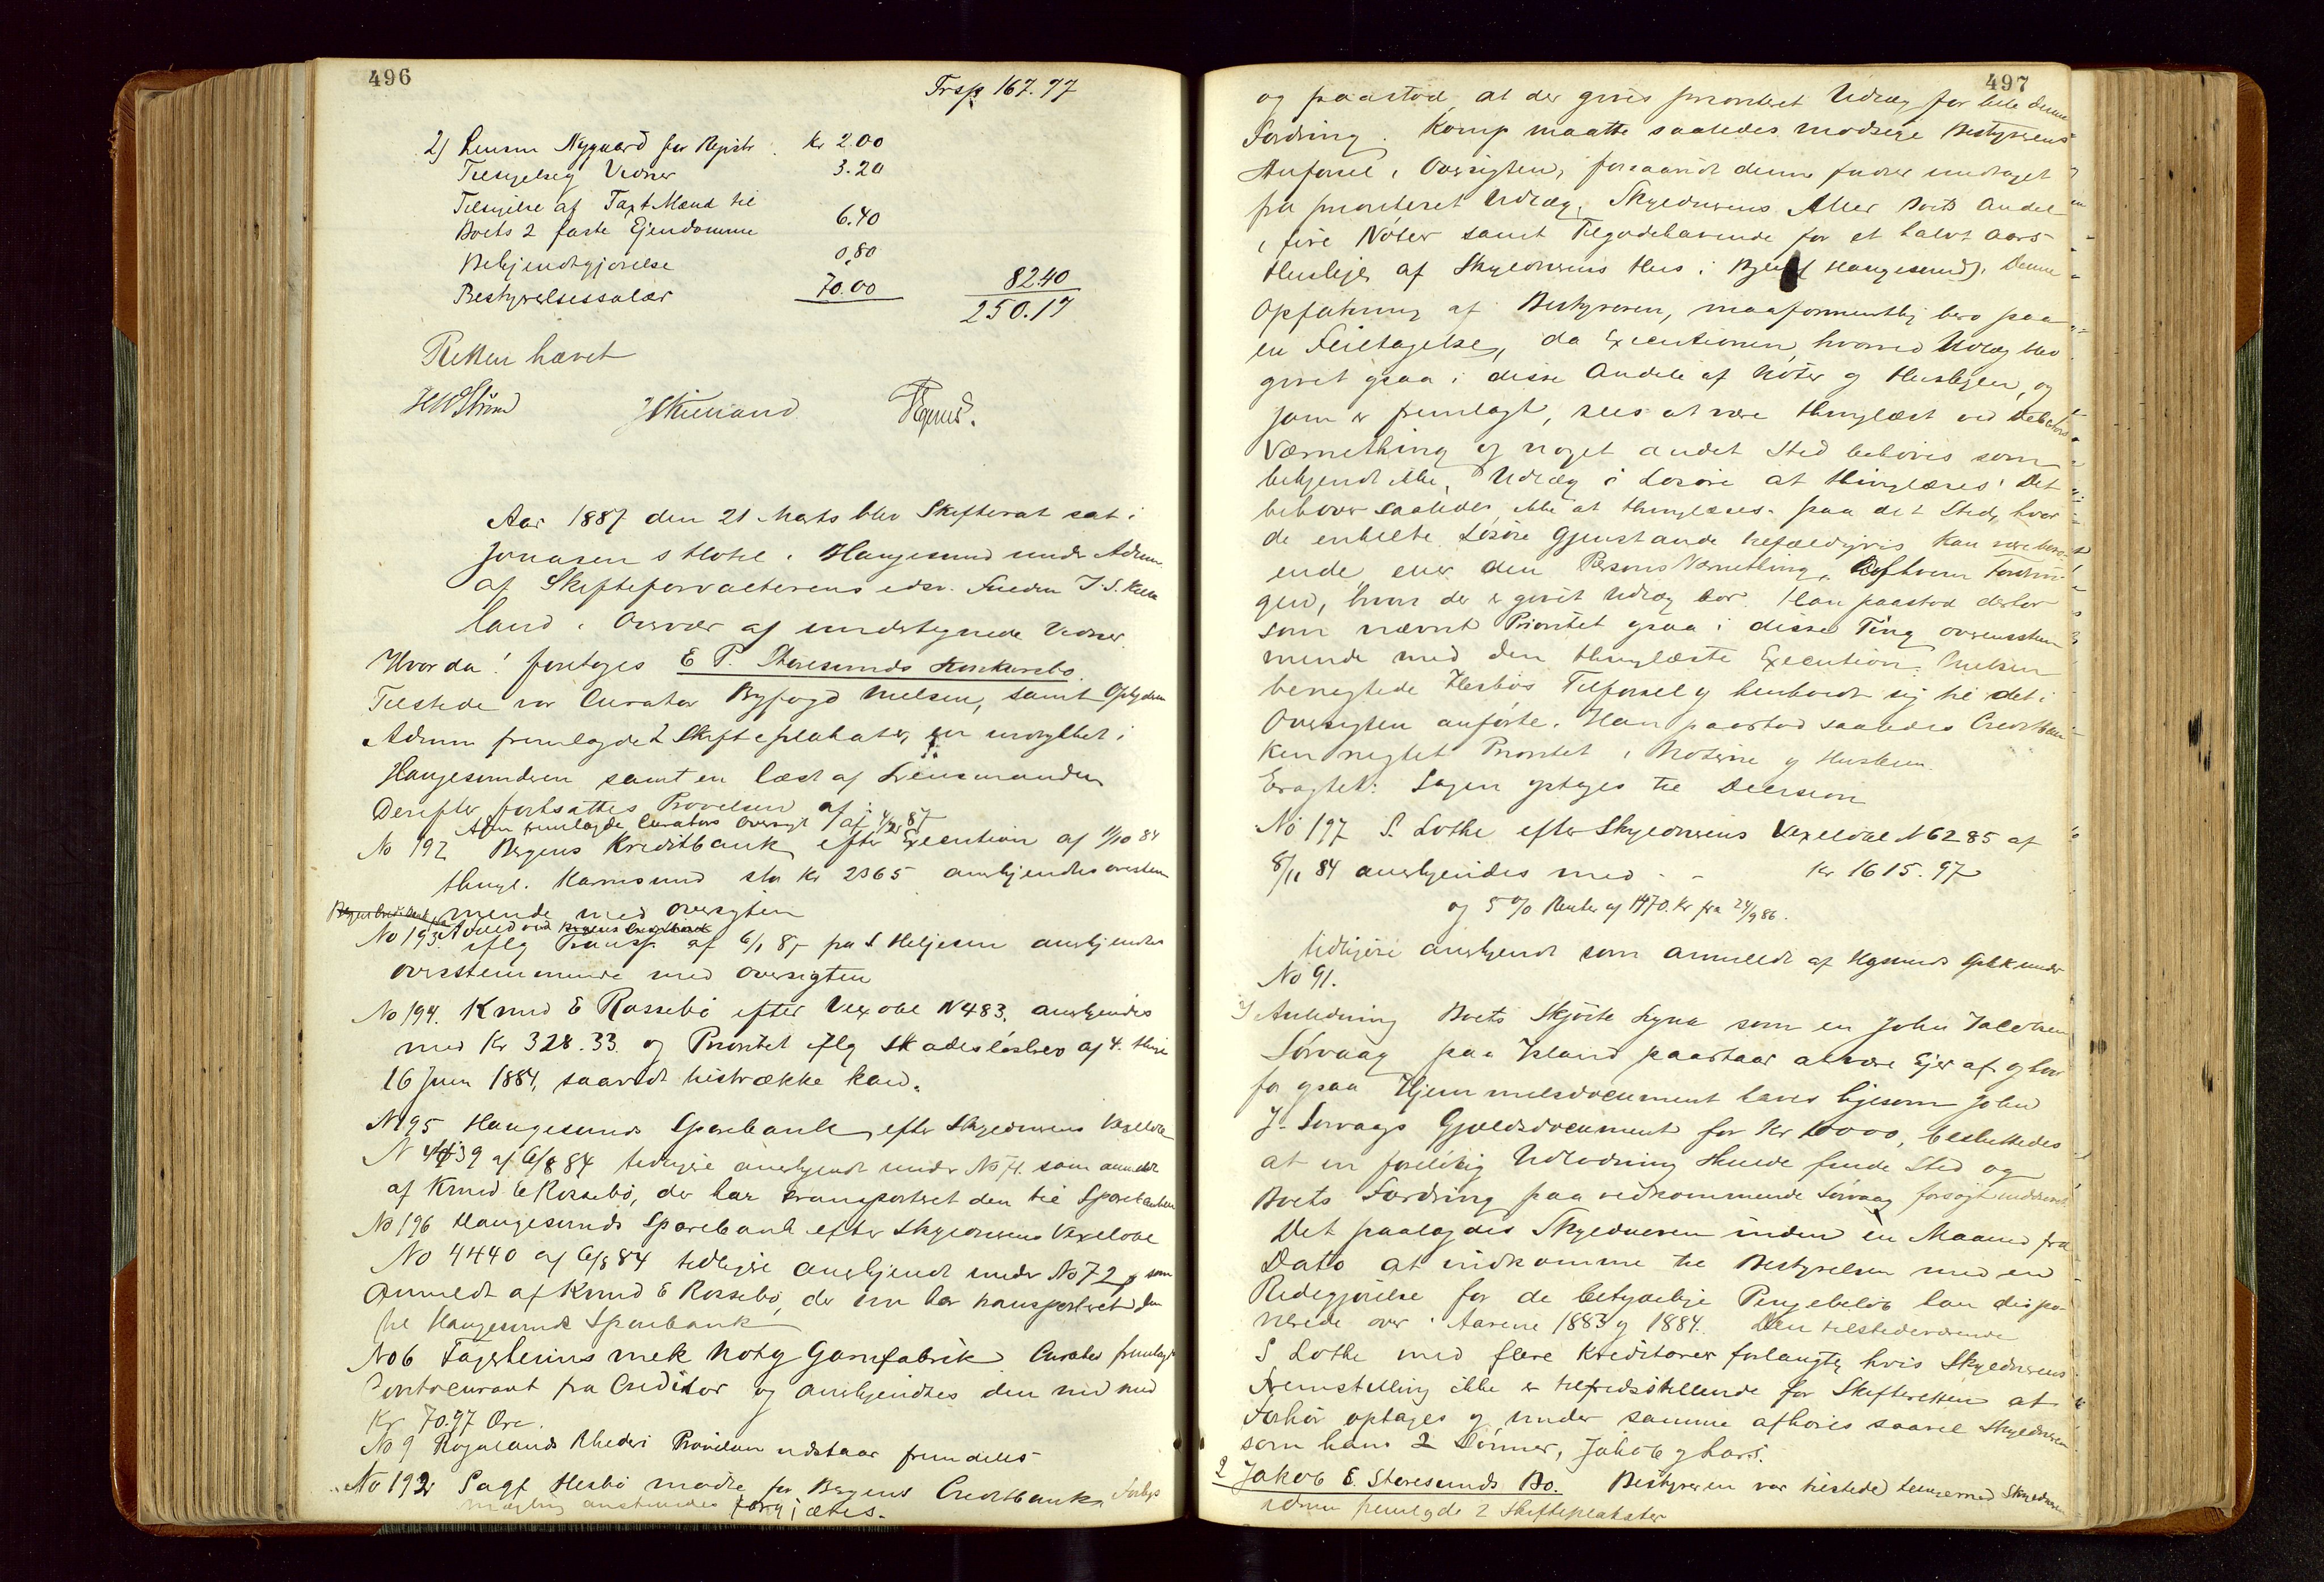 496
Trsp 167.77
2) Lensm Nygaard for Registr. Kr 2.00
Tilsigelse Vidner 3.20
Tilsigelse af Taxt Mænd til
Boets 2 faste Ejendomme 6.40
Bekjendtgjørelse 0,80
Bestyrelsessalær 70.00 82.40
250.17
Retten hævet
Aar 1887 den 21 Marts blev Skifteret sat i
Jonasen s Hotel i Haugesund under Admin
af Skifteforvalterens edsv. Fuldm J. S. Kiel
land i Overvær af undertegnede Vidner.
Hvorda! foretoges E P. Storesunds Konkursbo.
Tilstede var Curator Byfogd Nielsen, samt
Admin fremlagde 2 Skifteplakater, en indrykket i
Haugesunderen samt en læst af Lensmanden
Derefter fortsattes Prøvelsen af:
Adm fremlagde Curators Oversigt af
No 192 Bergens Kreditbank efter Execution af 11/10 84
thingl. Karmsund sta Kr 2365 anerkjendtes overstem
mende med Oversigten
No 193.
iflg Transp. af 6/1 87 fra S Heljesen anerkjendes
overstemmende med Oversigten
No 194. Knud E Rossebø efter Vexobl N 483. anerkjendes
med Kr 328.33. og Prioritet iflg Skadesløsbrev af 4. thingl
16 Juni 1884, saavidt tilstrække kan.
N 195 Haugesunds Sparebank efter Skyldnerens Vexelobl
N 4439 af 6/8 84 tidligere anerkjendt under No 71. som anmeldt
af Knud E Rossebø, der har transporteret den til Sparebanken
No 196 Haugesunds Sparebank efter Skyldnerens Vexelobl
No 4440 af 6/8 84 tidligere anerkjendt under No 72 som
Anmeldt af Knud E Rossebø, der nu har transporteret den
til Haugesunds Sparebank
No 6 Fagerheims mek Notog Garnfabrik Curator fremlagde
Contocurant fra Creditor og anerkjendtes den nu med
Kr 70.97 Øre.
No 9 Rogalands Rhederi Prøvelsen udstaar fremdeles
No 192 Sagf Hesbø mødte for Bergens Creditbank, Forligs
mægling anstilledes forgjæves.
497
og paastod, at der gives prioriteret Udlæg for hele denne
Fordring. Komp maatte saaledes modsige Bestyrerens
Anførsel i Oversigten, forsaavidt denne finder undtaget
fra prioriteret Udlæg, Skyldnerens Eller Boets Andel
i fire Nøter samt Tilgodehavende for et halvt Aars
Husleje af Skyldnerens Hus i Byen Haugesund). Denne
Opfatning af Bestyreren, maaformentlig bero paa
en Feiltagelse, da Executionen, hvorved Udlæg blev
givet ogsaa i disse Andele af Nøter og Huslejen, og
som er fremlagt, sees at være thinglæst ved Debitors
Værnething og noget andet Sted behøves som
bekjendt ikke, Udlæg i Løsøre at thinglæses. Det
behøver saaledes ikke at thinglæses paa det Sted, hvor
de enkelte Løsøre Gjenstande tilfældigvis kan være bero
ende, eller den Persons Værnething, hos hvem Fordrin
gen, hvori der er givet Udlæg bor. Han paastod derfor
som nævnt Prioritet ogsaa i disse Ting overensstem
mende med den thinglæste Execution. Nielsen
benegtede Hesbøs Tilførsel og henholdt sig til det i
Oversigten anførte. Han paastod saaledes Creditban
ken negtet Prioritet i Nøterne og Huslejen.
Eragtet: Sagen optages til Decision
No 197 S. Lothe efter Skyldnerens Vexelobl N 6285 af
8/11 84 anerkjendes med - - Kr 1615.97
og 5 % Renter af 1470. Kr fra 24/9 86.
tidligere anerkjendt som anmeldt af Hgsunds under
No 91.
I Anledning Boets Skjøite Lyna som en John Jacobsen
Sørvaag paa Island paastaar at være Ejer af og hvor
for ogsaa Hjemmelsdocument haves ligesom John
J. Sørvaags Gjældsdocument for Kr 10000, besluttedes
at en foreløbig Udlodning skulde finde Sted og
Boets Fordring paa vedkommende Sørvaag forsøgt inddrevet.
Det paalagdes Skyldneren inden en Maaned fra
Dato at indkomme til Bestyrelsen med en
Redegjørelse for de betydelige Pengebeløb han dispo
nerede over i Aarene 1883 og 1884. Den tilstedeværende
S Lothe med flere Kreditorer forlangte, hvis Skyldnerens
Fremstilling ikke er tilfredsstillende for Skifteretten at
Forhør optages og under samme afhøres saavel Skyldneren
som hans 2 Sønner, Jakob og Lars.
2 Jakob E. Storesunds Bo. Bestyreren var tilstede tilligemed Skyldneren
Admin fremlagde 2 Skifteplakater